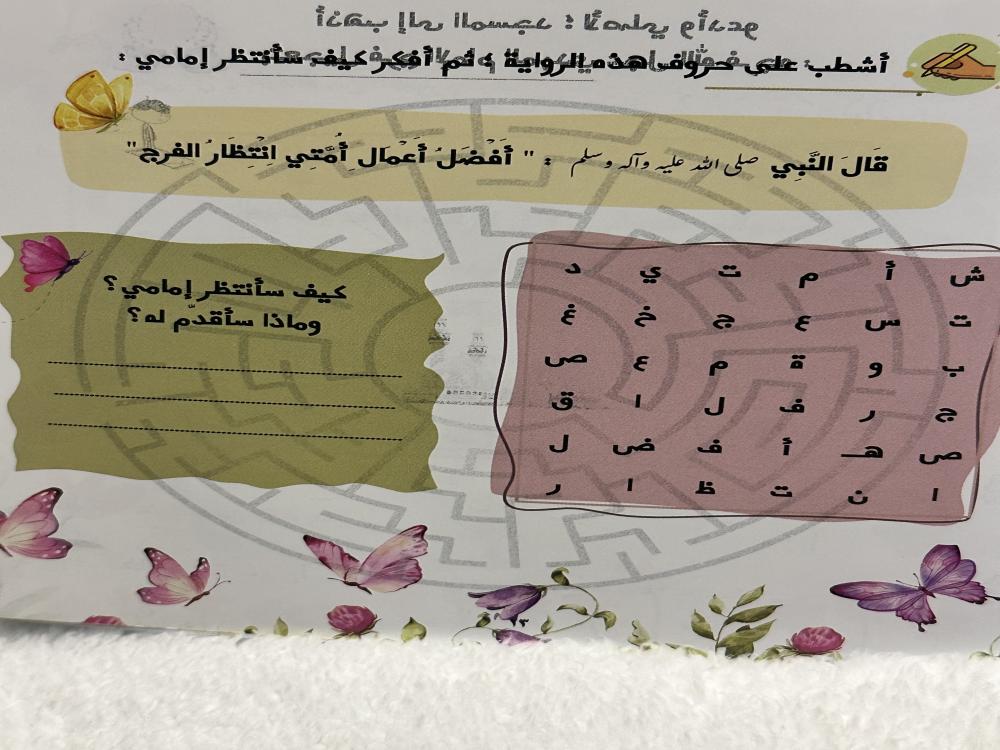 أشطب على حروف هذه الرواية ، ثم أفكر كيف سأنتظر إمامي :
قَالَ النَّبِي صلى الله عليه وآله وسلم : " أَفْضَلُ أَعْمَالِ أُمَّتِي انْتِظَارُ الفرج"
ش أ م ت ي د
ت س ع ج خ غ
ب و ة م ع ص
ج ر ف ل ا ق
ص هـ أ ف ض ل
ا ن ت ظ ا ر
كيف سأنتظر إمامي ؟
وماذا سأقدّم له؟